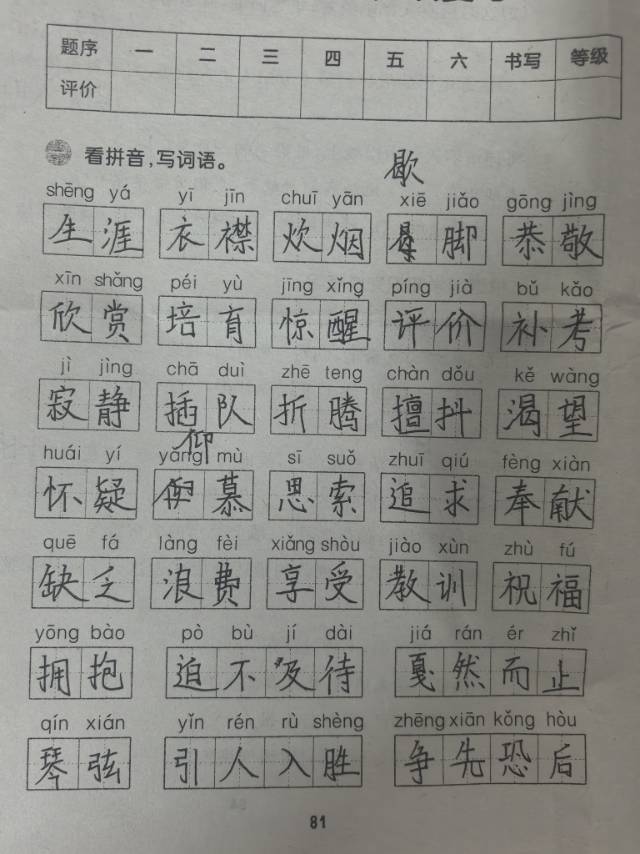 题序 一 二 三 四 五 六 书写 等级
评价
一 看拼音,写词语。
歇
shēng yá yī jīn chuī yān xiē jiǎo gōng jìng
生涯 衣襟 炊烟 脚 恭敬
xīn shǎng péi yù jīng xǐng píng jià bǔ kǎo
欣赏 培育 惊醒 评价 补考
jì jìng chā duì zhē teng chàn dǒu kě wàng
寂静 插队 折腾 擅抖 渴望
仰
huái yí yǎng mù sī suǒ zhuī qiú fèng xiàn
怀疑 慕 思索 追求 奉献
quē fá làng fèi xiǎng shòu jiào xùn zhù fú
缺乏 浪费 享受 教训 祝福
yōng bào pò bù jí dài jiá rán ér zhǐ
拥抱 迫不及待 戛然而止
qín xián yǐn rén rù shèng zhēng xiān kǒng hòu
琴弦 引人入胜 争先恐后
81